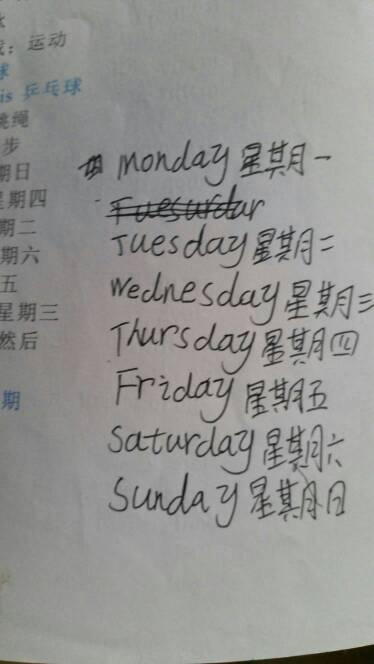 : 运动
球
is 乒乓球
跳绳
步
期日
星期四
期二
期六
五
星期三
然后
期
monday 星期一
Tuesday 星期二
Wednesday 星期三
Thursday 星期四
Friday 星期五
Saturday 星期六
Sunday 星期日